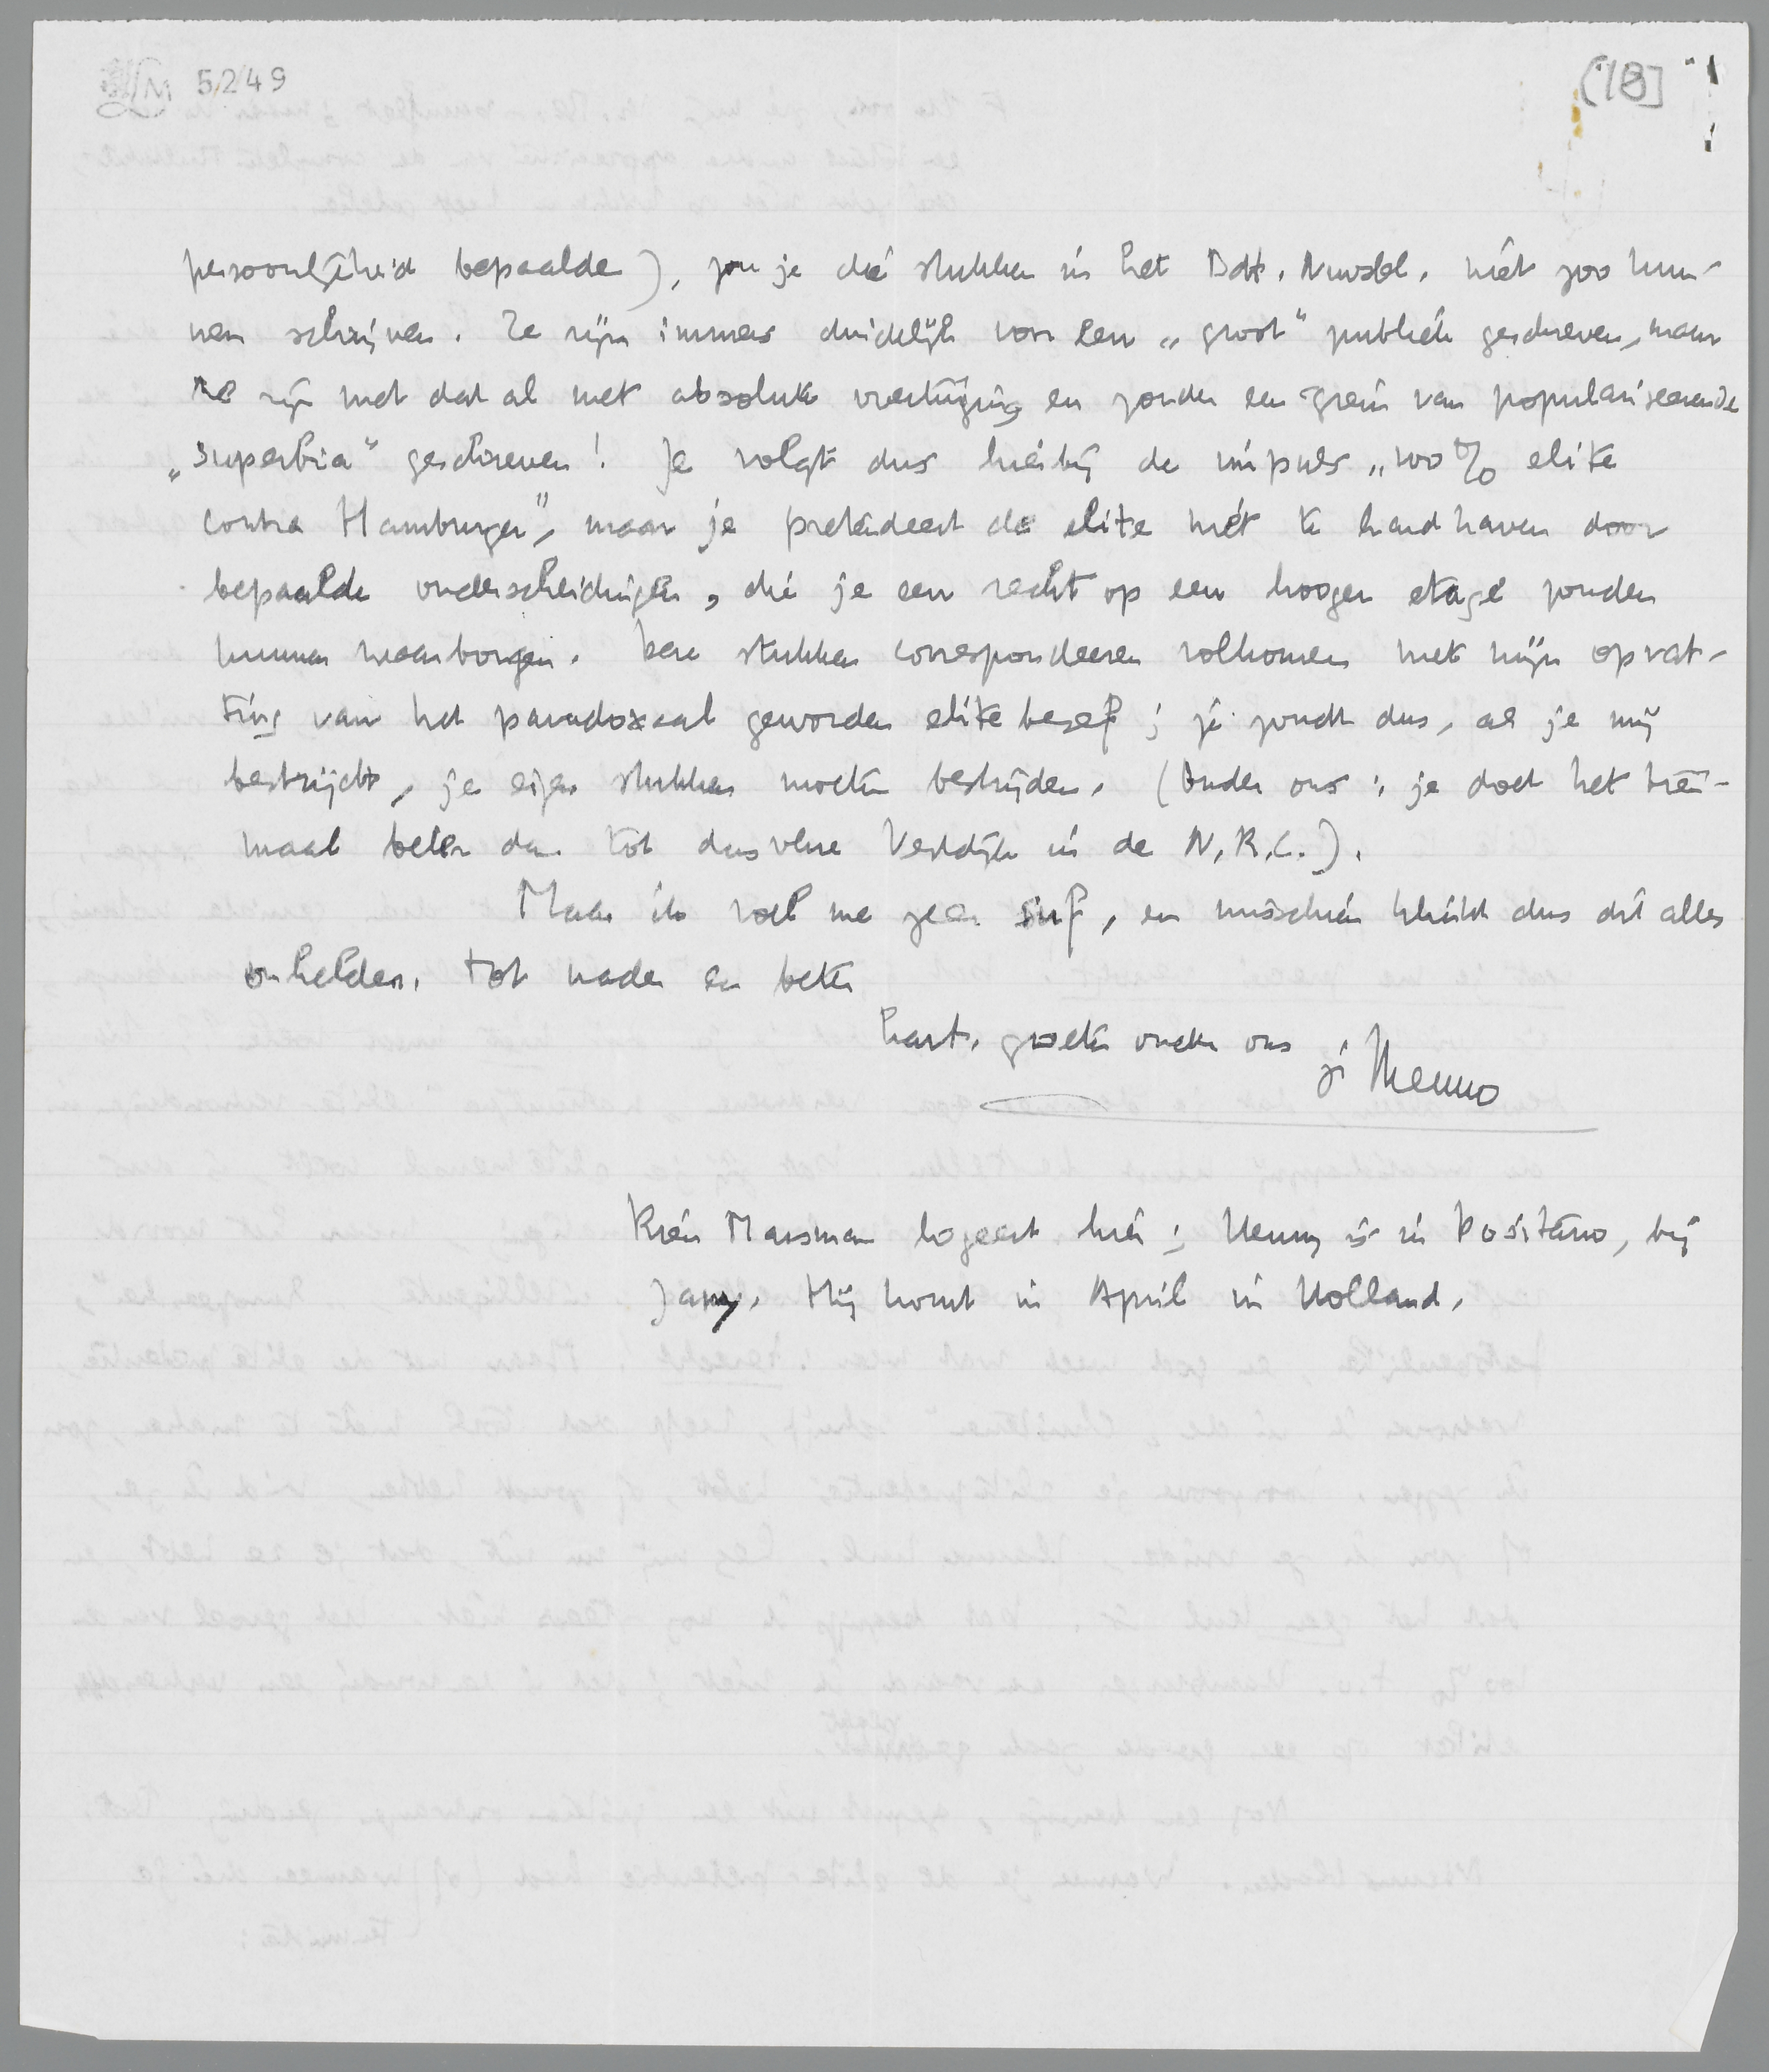 LM 5249
(18]
persoonlijkheid bepaalde), zou je die stukken in het Bat. Nwsbl. niet zoo kun-
nen schrijven. Ze zijn immers duidelijk voor een „groot" publiek geschreven, maar
ze zijn met dat al met absolute overtuiging en zonder een grein van populariseerende
„superbia" geschreven! Je volgt dus hierbij de impuls „100% elite
contra Hamburger", maar je pretendeert de elite niet te handhaven door
bepaalde onderscheidingen, die je een recht op een hooger etage zouden
kunnen waarborgen. Deze stukken correspondeeren volkomen met mijn opvat-
ting van het paradoxaal geworden elite besef; je zoudt dus, als je mij
bestrijdt, je eigen stukken moeten bestrijden. (Onder ons: je doet het tien-
maal beter dan tot dusverre Vestdijk in de N.R.C.).
Maar ik voel me zeer suf, en misschien klinkt dus dit alles
onhelder. Tot nader en beter
hart. groeten onder ons
je Menno
Rien Marsman logeert hier; Henny is in Positano, bij
Jany. Hij komt in April in Holland.